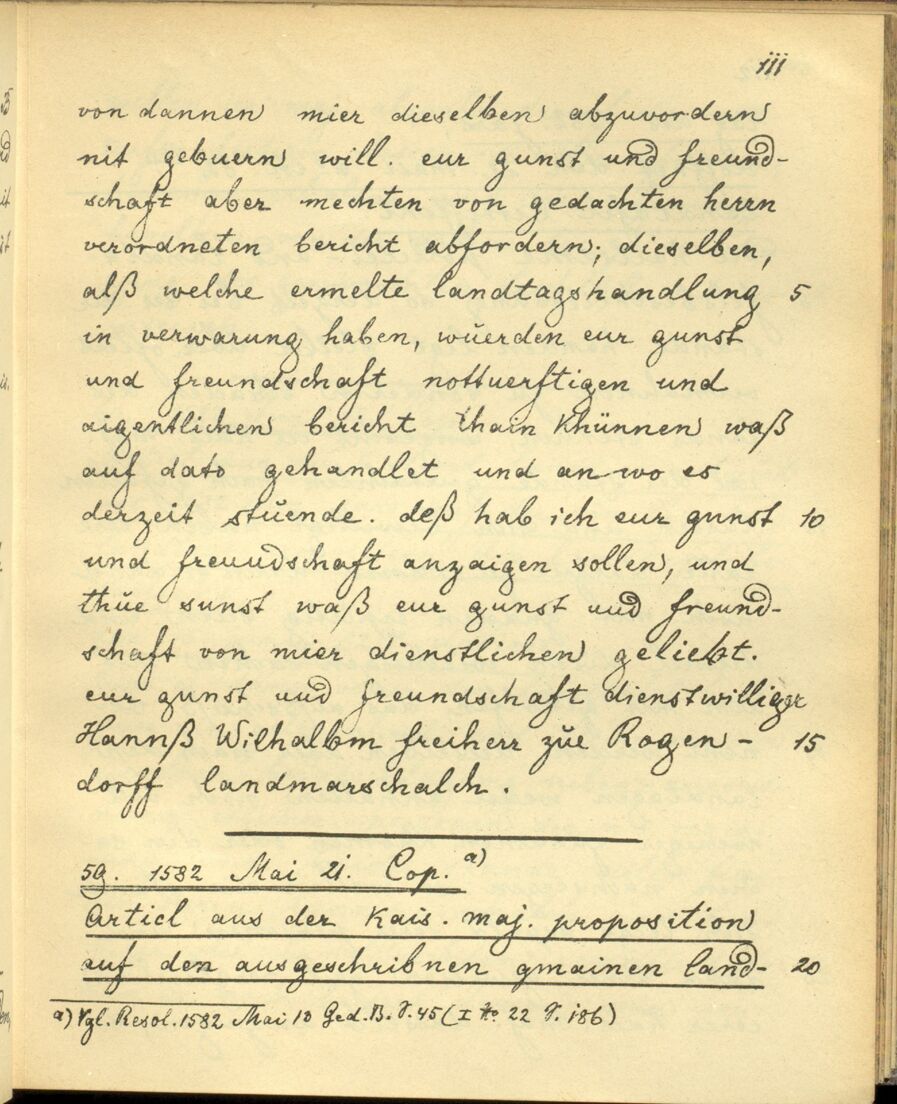 iii
von dannen mier dieselben abzuvordern
nit gebuern will. eur gunst und freund-
schaft aber mechten von gedachten herrn
verordneten bericht abfordern; dieselben,
alß welche ermelte landtagshandlung 5
in verwarung haben, wüerden eur gunst
und freundschaft nottuerftigen und
aigentlichen bericht thain khünnen waß
auf dato gehandlet und an wo es
derzeit stüende. deß hab ich eur gunst 10
und freundschaft anzaigen sollen, und
thüe sunst waß eur gunst und freund-
schaft von mier dienstlichen geliebt.
eur gunst und freundschaft dienstwilliger
Hannß Wilhalbm freiherr züe Rogen- 15
dorff landmarschalch.
59. 1582 Mai 21. Cop. a)
Articl aus der Kais. maj. proposition
auf den ausgeschribnen gmainen land- 20
a) Vgl. Resol. 1582 Mai 10 Ged. B. S. 45 (I No 22 S. 186)